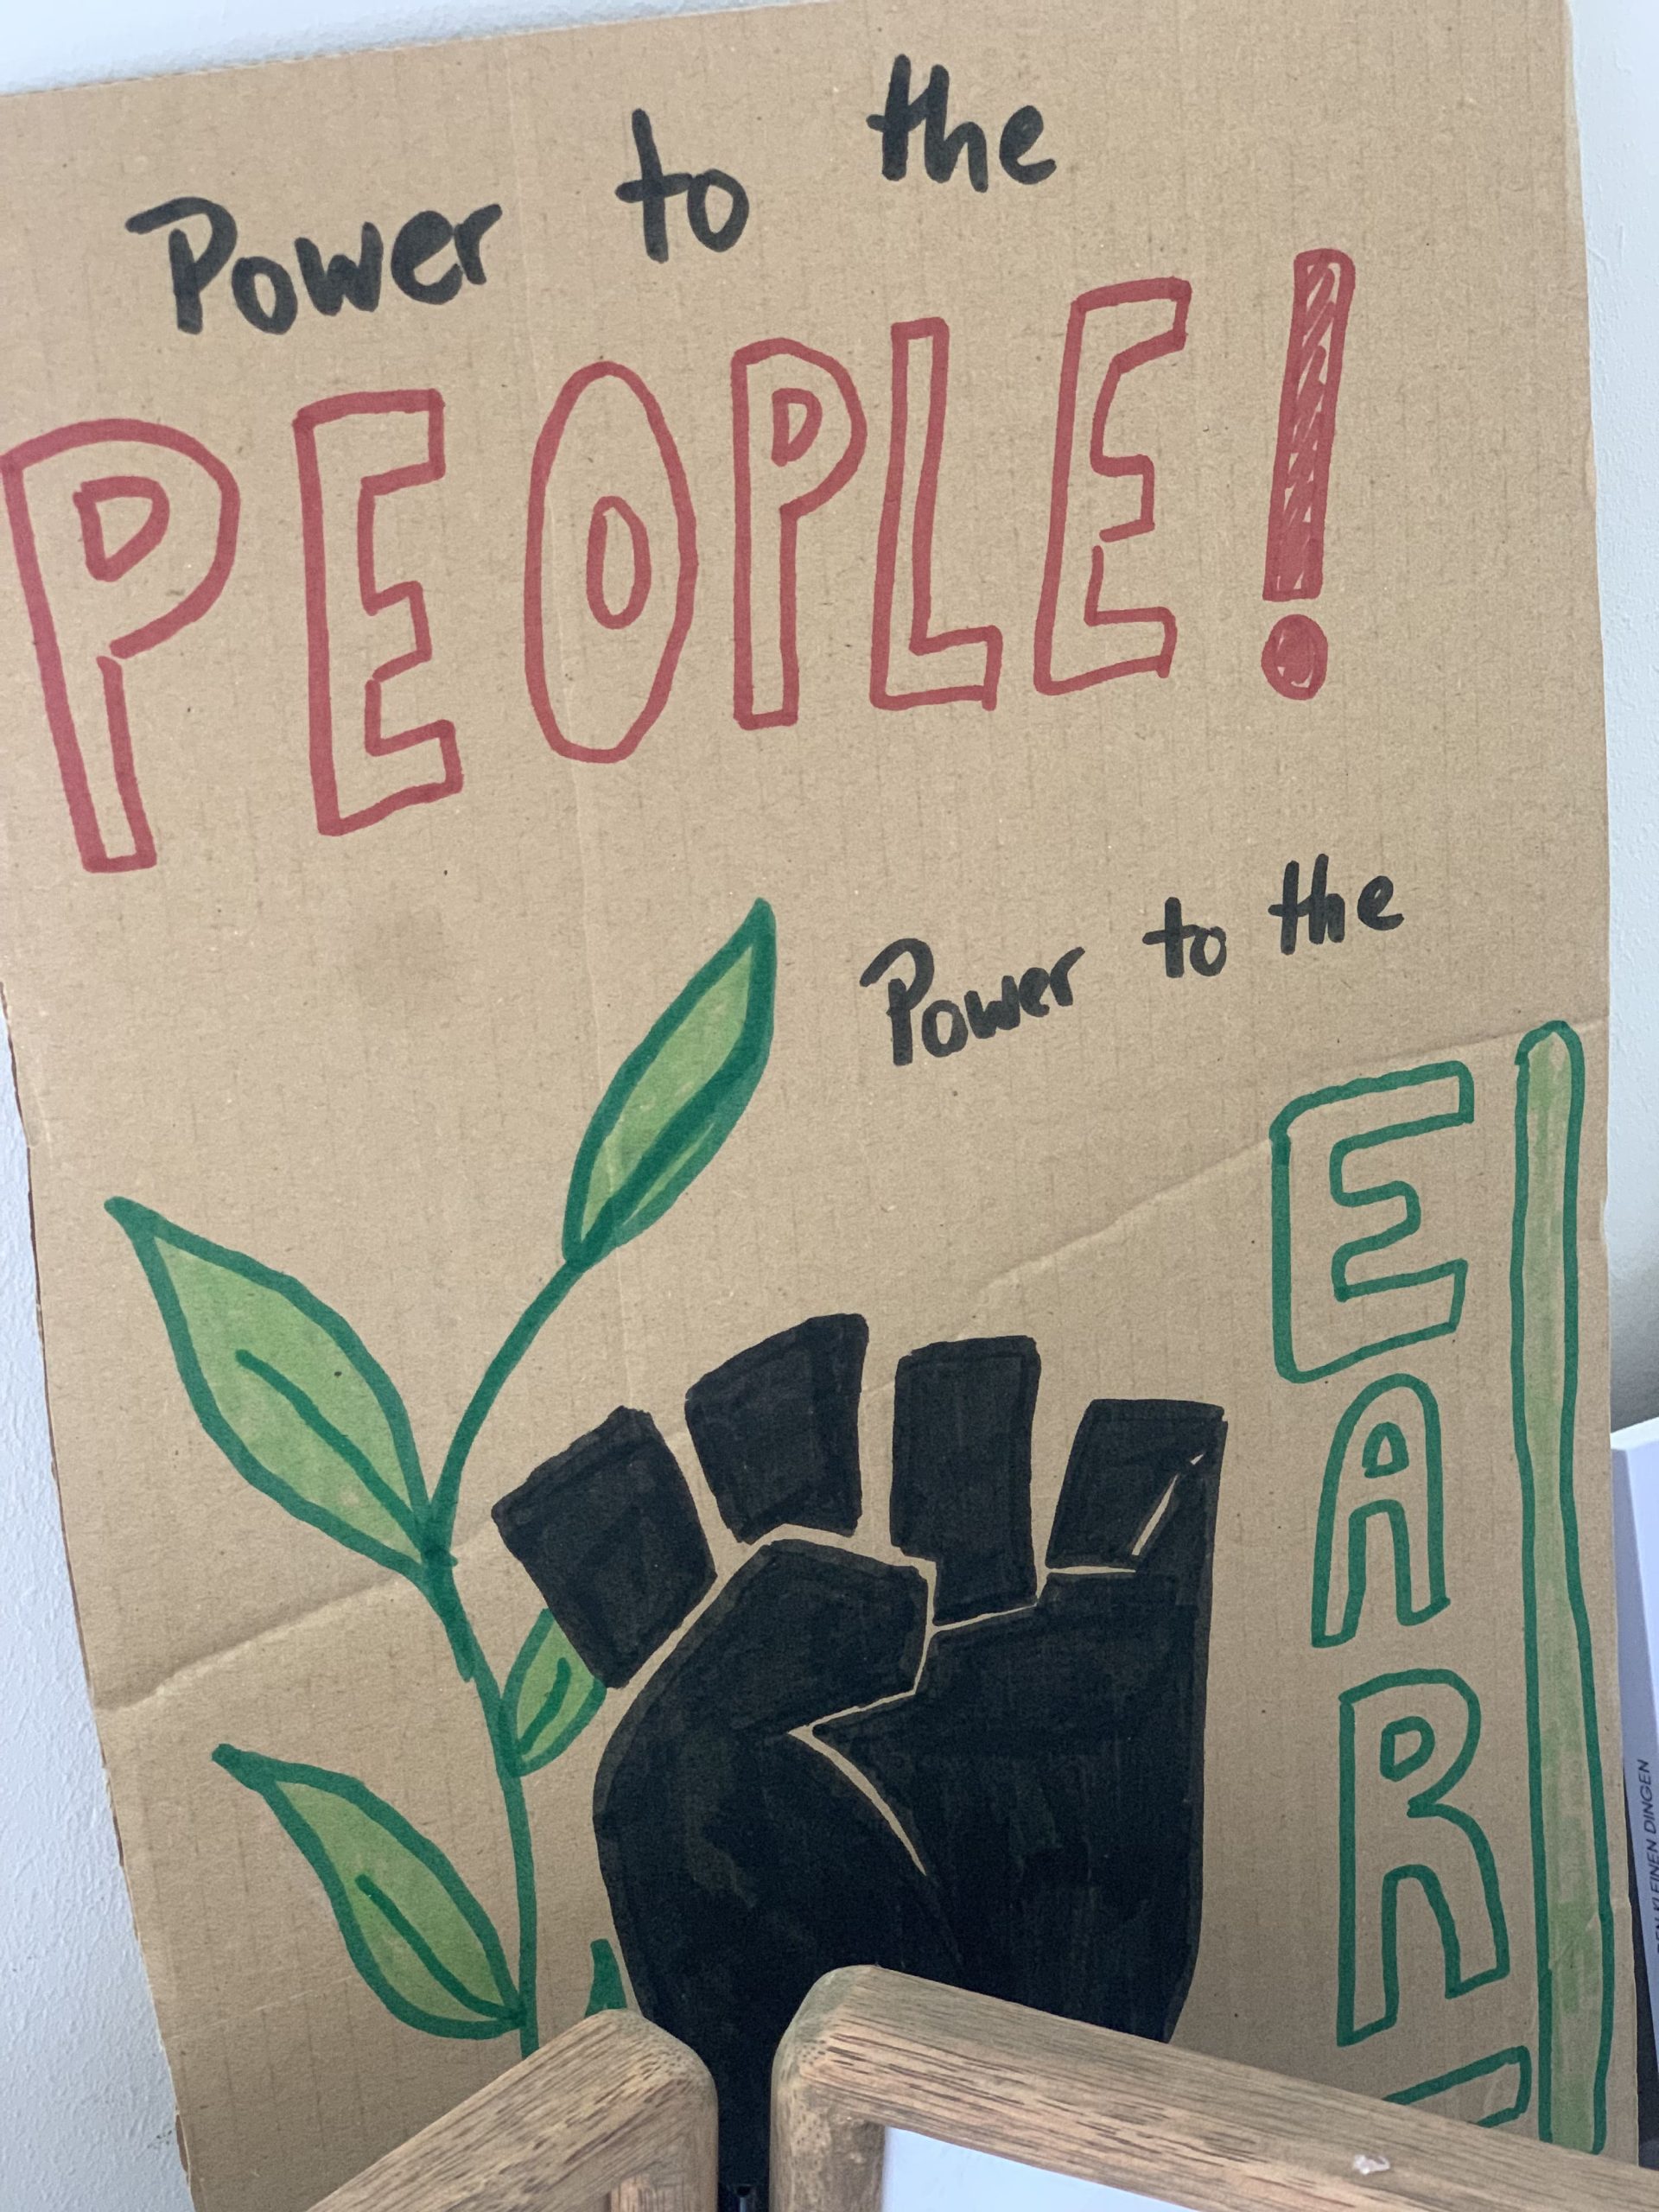 Power to the
PEOPLE!
Power to the
EART
KLEINEN DINGEN